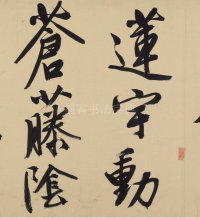 蓮宇動
蒼藤陰